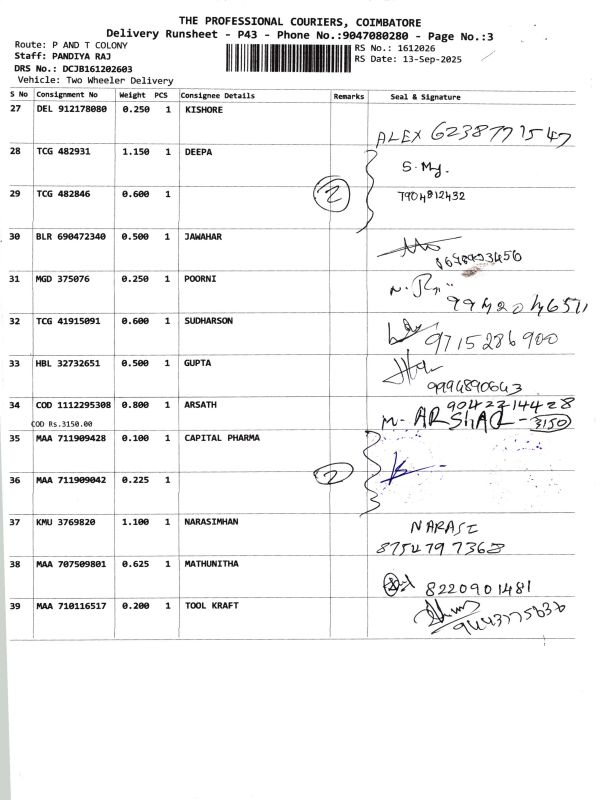 THE PROFESSIONAL COURIERS, COIMBATORE
Delivery Runsheet - P43 - Phone No.:9047080280 - Page No.:3
Route: P AND T COLONY
Staff: PANDIYA RAJ
DRS No.: DCJB161202603
Vehicle: Two Wheeler Delivery
RS No.: 1612026
RS Date: 13-Sep-2025
S No Consignment No Weight PCS Consignee Details Remarks Seal & Signature
27 DEL 912178080 0.250 1 KISHORE
ALEX 6238771547
28 TCG 482931 1.150 1 DEEPA
2
29 TCG 482846 0.600 1 7904812432
30 BLR 690472340 0.500 1 JAWAHAR
31 MGD 375076 0.250 1 POORNI
32 TCG 41915091 0.600 1 SUDHARSON
9715286900
33 HBL 32732651 0.500 1 GUPTA
9994890643
34 COD 1112295308 0.800 1 ARSATH
9042214428
COD Rs.3150.00
M. ARSHAD - 3150
35 MAA 711909428 0.100 1 CAPITAL PHARMA
36 MAA 711909042 0.225 1 2
37 KMU 3769820 1.100 1 NARASIMHAN
NARASI
8754797368
38 MAA 707509801 0.625 1 MATHUNITHA
8220901481
39 MAA 710116517 0.200 1 TOOL KRAFT
9443775636